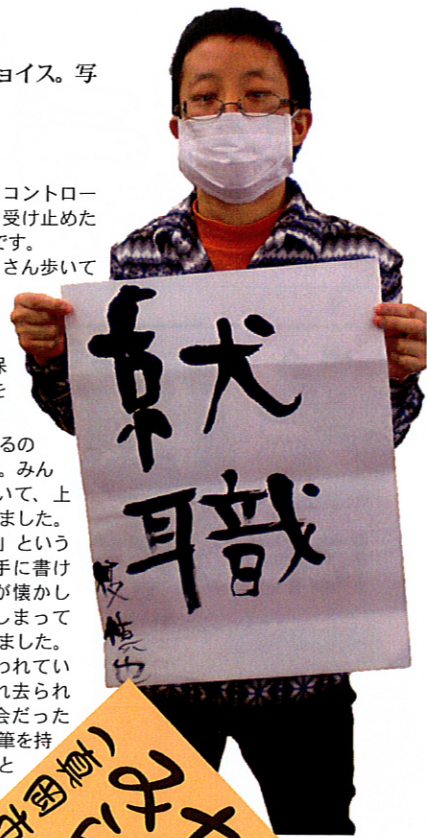 ョイス。写
コントロー
受け止めた
です。
さん歩いて
保
を
るの
。みん
いて、上
ました。
」という
手に書け
が懐かし
しまって
ました。
われてい
れ去られ
会だった
筆を持
と
就
職
(真岡市